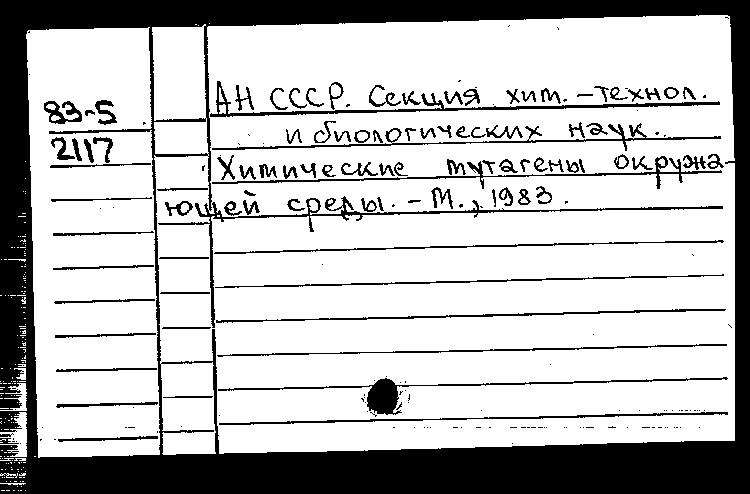 83-5
2117
АН СССР. Секция хим. - технол.
и биологических наук.
Химические мутагены окружа-
ющей среды. - М., 1983.